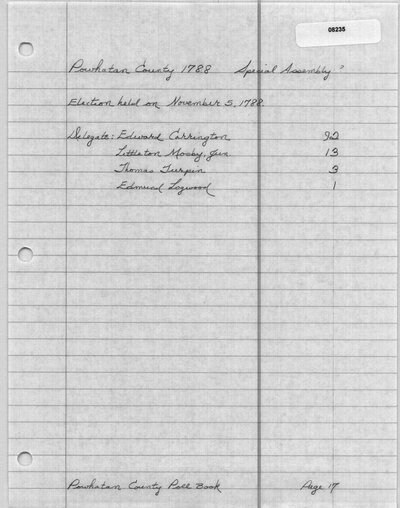 08235
Powhatan County 1788 Special Assembly?
Election held on November 5, 1788.
Delegate: Edward Carrington 92
Littleton Mosby, Jun. 13
Thomas Turpin 3
Edmund Logwood 1
Powhatan County Poll Book Page 17